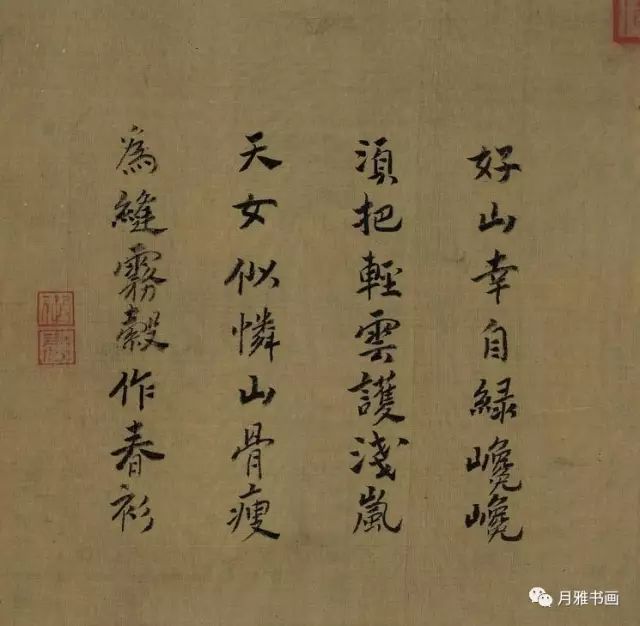 好山幸自綠巉巉
須把輕雲護淺嵐
天女似憐山骨瘦
為縫霧縠作春衫
御書
月雅书画